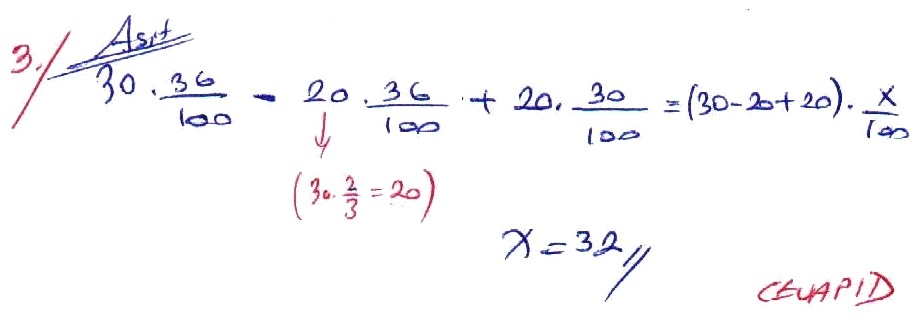 3./ Asit
30 . 36/100 - 20 . 36/100 + 20 . 30/100 = (30-20+20) . x/100
↓
(30 . 2/3 = 20)
x = 32 //
CEVAP D